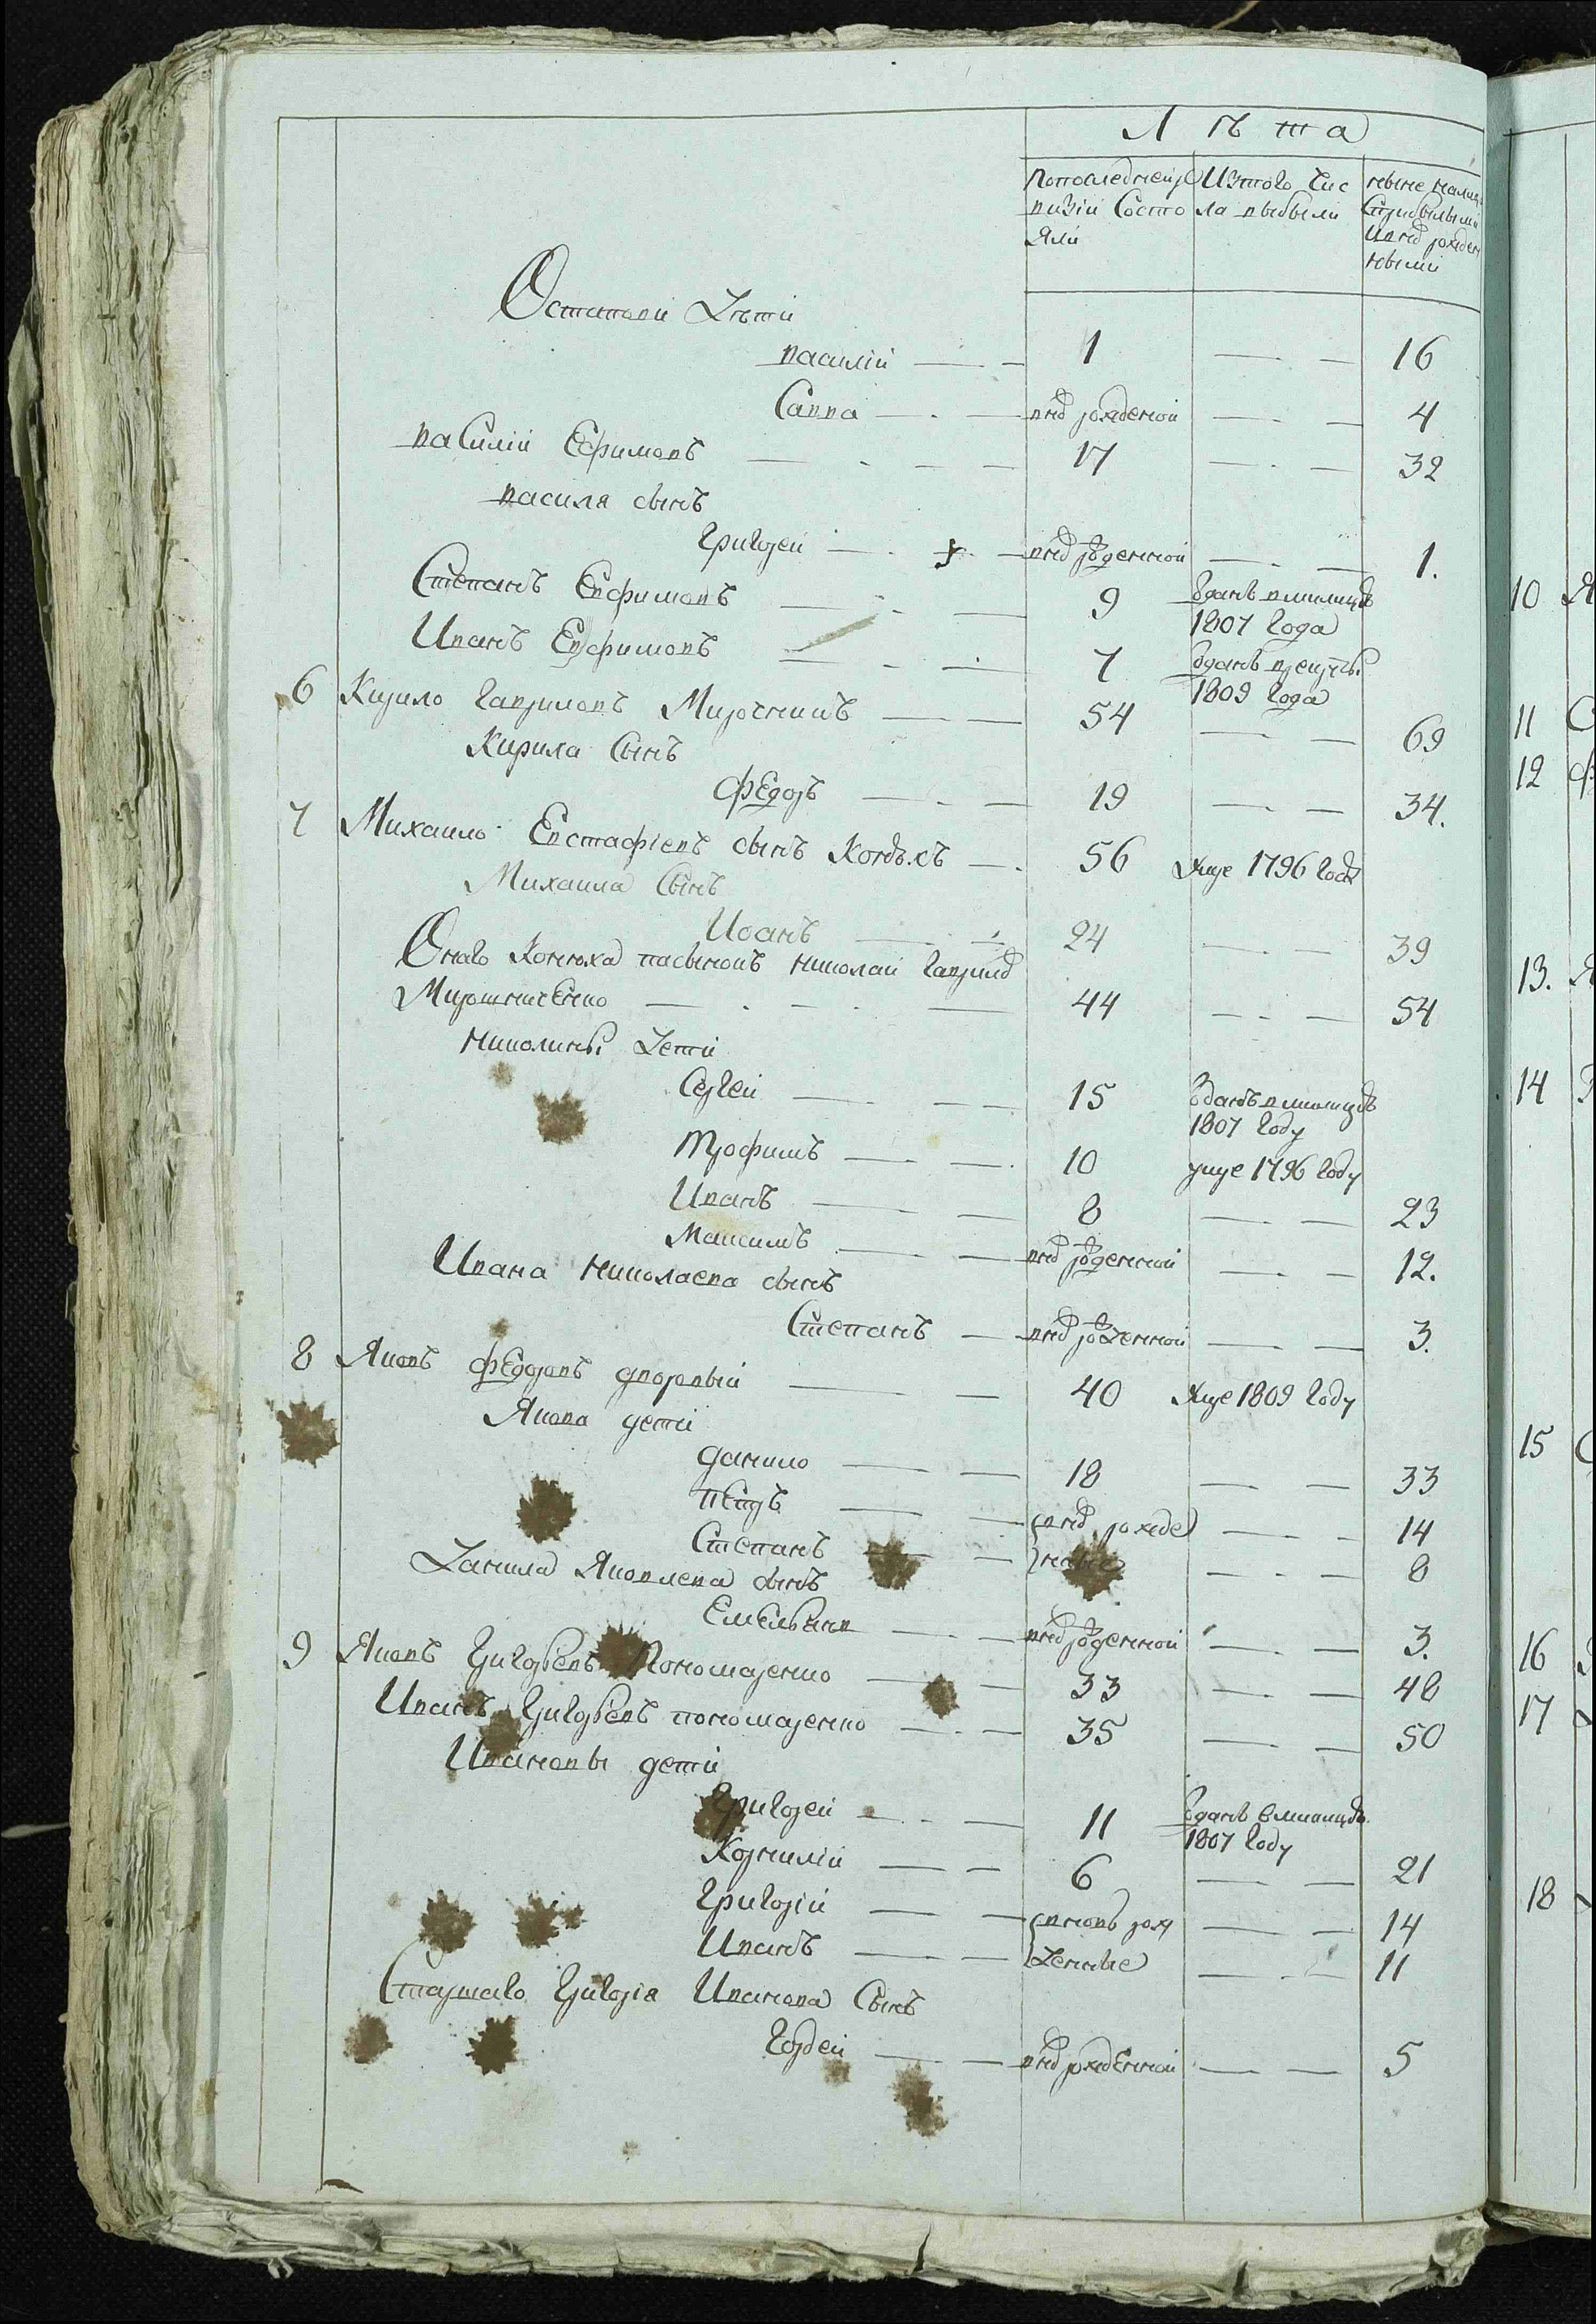 Лѣта
Попоследней ре
визіи Состо
Яли
Изтого Чис
ла выбыли
ныне налицо
Сприбылыми
ивнѡ рожден
ными
Остаповы Дѣти
василій 1 16
Савва внѡ рожденой 4
ваСилій Ефимовъ 17 32
василя сынъ
Григорей внѡ рожденной 1.
Степанъ Евфимовъ 9 Зданъ вмилицію
1807 Года
Иванъ Евфимовъ 7 Зданъ врекруты
1809 Года
6 Кирило Гаврилов Мирочникъ 54 69
Кирила Сынъ
Федоръ 19 34.
7 Михаило Евстафіевъ сынъ 56 Умре 1796 Года
Михаила Сынъ
Иванъ 24 39
Онаго Конюха пасынокъ николай Гаврилѡ
Мирошниченко 44 54
николины Дети
Сергей 15 Зданъ вмилицию
1807 Году
Трофимъ 10 умре 1796 Году
Иванъ 8 23
Максимъ внѡ рожденной 12.
Ивана николаева сынъ
Степанъ внѡ рожденной 3.
8 Яковъ Федоровъ дворовый 40 Умре 1809 Году
Якова дети
данило 18 33
петръ внѡ рожде 14
Степанъ нные 8
Данила Яковлева сынъ
Емельянъ внѡ рожденной 3.
9 Яковъ Григорьевъ Пономаренко 33 48
Иванъ Григорьевъ пономаренко 35 50
Ивановы дети
Григорей 11 Зданъ вмилицию
1807 Году
Корнилій 6 21
Григорій вновь рож 14
Иванъ Денные 11
Старшаго Григорія Иванова Сынъ
Гордей внѡ рожденной 5
10
11
12
13.
14
15
16
17
18